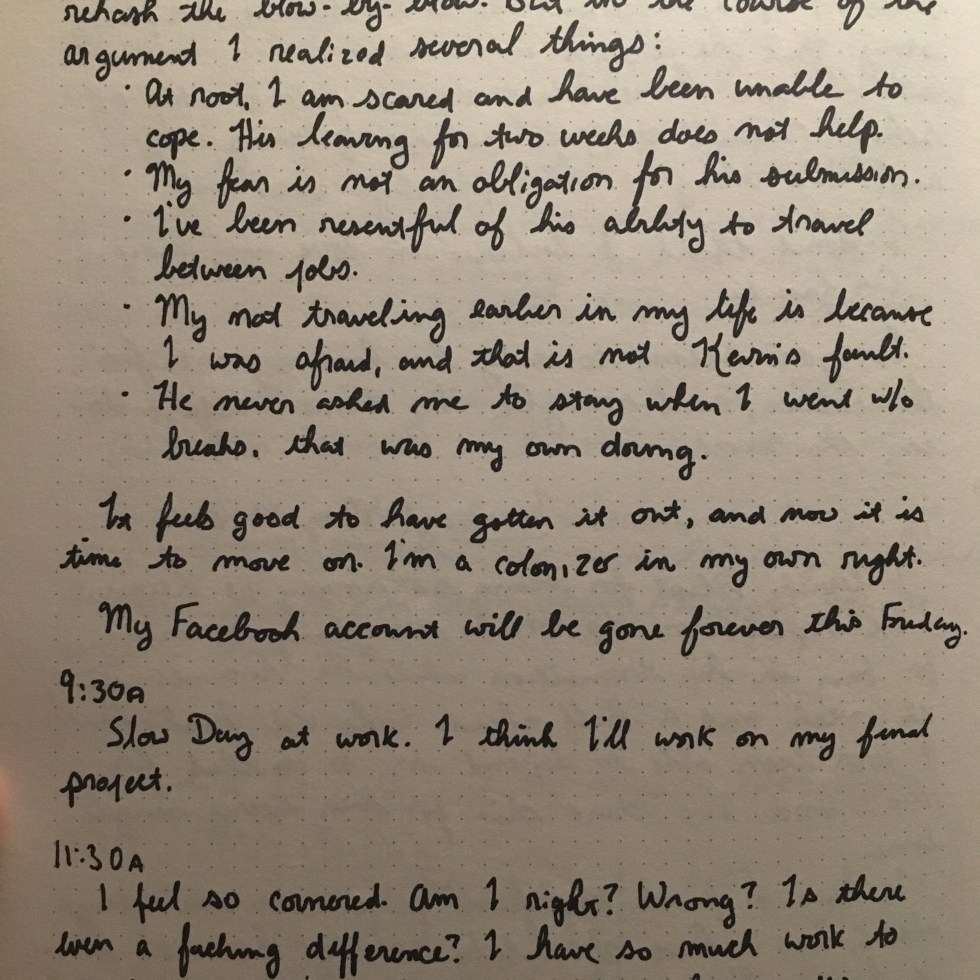 rehash the blow-by-blow. But in the course of the
argument I realized several things:
· At root, I am scared and have been unable to
cope. His leaving for two weeks does not help.
· My fear is not an obligation for his submission.
· I've been resentful of his ability to travel
between jobs.
· My not traveling earlier in my life is because
I was afraid, and that is not Kevin's fault.
· He never asked me to stay when I went w/o
breaks, that was my own doing.
It feels good to have gotten it out, and now it is
time to move on. I'm a colonizer in my own right.
My Facebook account will be gone forever this Friday.
9:30A
Slow Day at work. I think I'll work on my final
project.
11:30A
I feel so cornered. Am I right? Wrong? Is there
even a fucking difference? I have so much work to